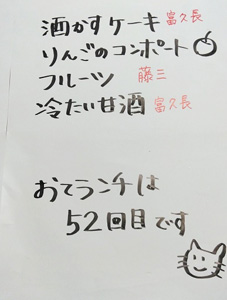 酒かすケーキ 富久長
りんごのコンポート
フルーツ 藤三
冷たい甘酒 富久長
おてランチは
52回目です